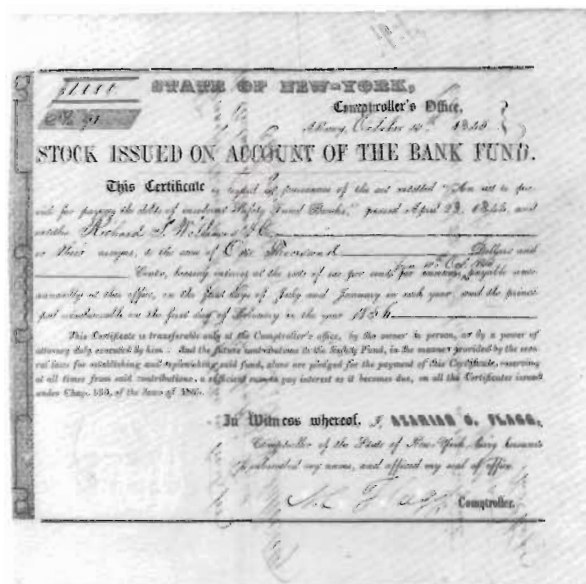 STATE OF NEW-YORK,
Comptroller's Office,
Albany, October
STOCK ISSUED ON ACCOUNT OF THE BANK FUND.
This Certificate is issued in pursuance of the act entitled "An act to pro-
vide for paying the debts of insolvent Safety Fund Banks," passed April
entitles Richard S. Williams
or their assigns, to the sum of One Thousand Dollars and
Cents, bearing interest at the rate of six per cent. per annum, payable semi-
annually at this office, on the first days of July and January in each year, and the princi-
pal reimbursable on the first day of February in the year
This Certificate is transferable only at the Comptroller's office, by the owner in person, or by a power of
attorney duly executed by him. And the future contributions to the Safety Fund, in the manner provided by the seve-
ral laws for establishing and replenishing said fund, alone are pledged for the payment of this Certificate, reserving
at all times from said contributions, a sufficient sum to pay interest as it becomes due, on all the Certificates issued
under Chap. of the laws of
In Witness whereof, I, AZARIAH C. FLAGG,
Comptroller of the State of New-York, have hereunto
subscribed my name, and affixed my seal of office.
Comptroller.